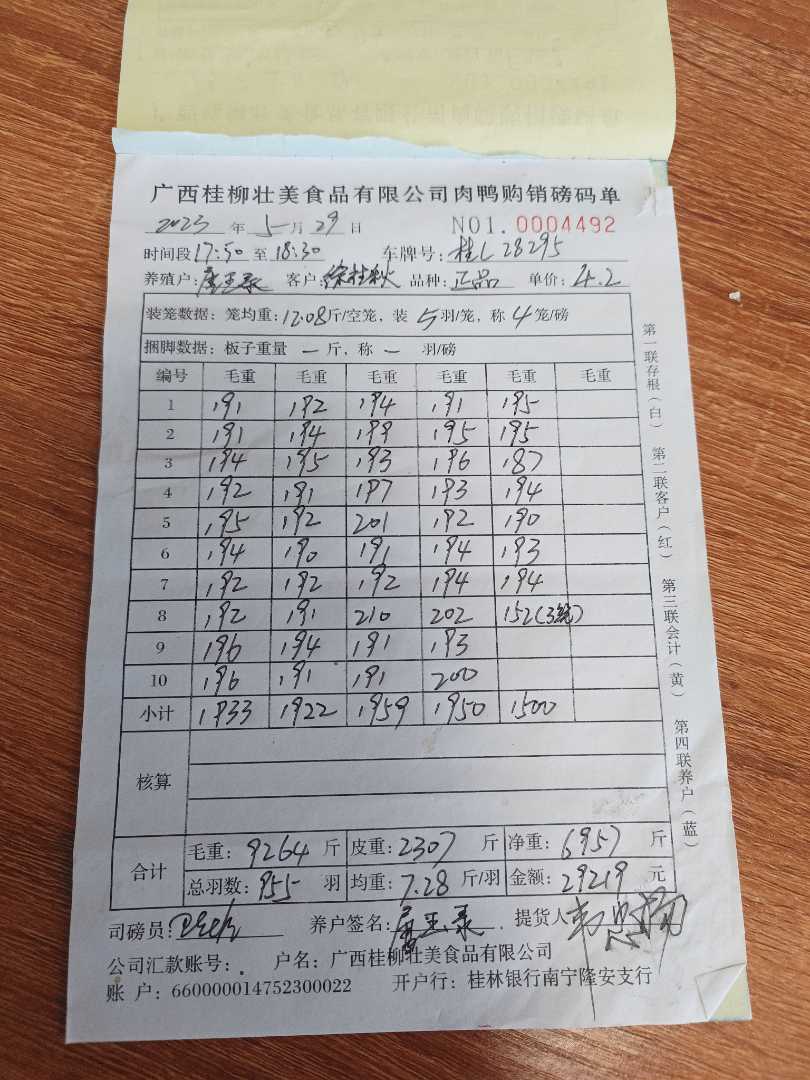 广西桂柳壮美食品有限公司肉鸭购销磅码单
2023 年 5 月 29 日 N01. 0004492
时间段 17:50 至 18:30 车牌号: 桂L28295
养殖户: 客户: 徐桂秋 品种: 正品 单价: 4.2
装笼数据: 笼均重: 12.08 斤/空笼, 装 5 羽/笼, 称 4 笼/磅
捆脚数据: 板子重量 — 斤, 称 — 羽/磅
编号 毛重 毛重 毛重 毛重 毛重 毛重
1 191 192 194 191 195
2 191 194 199 195 195
3 194 195 193 196 187
4 192 191 197 193 194
5 195 192 201 192 190
6 194 190 191 194 193
7 192 192 192 194 194
8 192 191 210 202 152(3笼)
9 196 194 191 193
10 196 191 191 200
小计 1933 1922 1959 1950 1500
核算
合计
毛重: 9264 斤 皮重: 2307 斤 净重: 6957 斤
总羽数: 955 羽 均重: 7.28 斤/羽 金额: 29219 元
司磅员: 养户签名: 提货人
公司汇款账号: 户名: 广西桂柳壮美食品有限公司
账 户: 660000014752300022 开户行: 桂林银行南宁隆安支行
第一联存根(白) 第二联客户(红) 第三联会计(黄) 第四联养户(蓝)